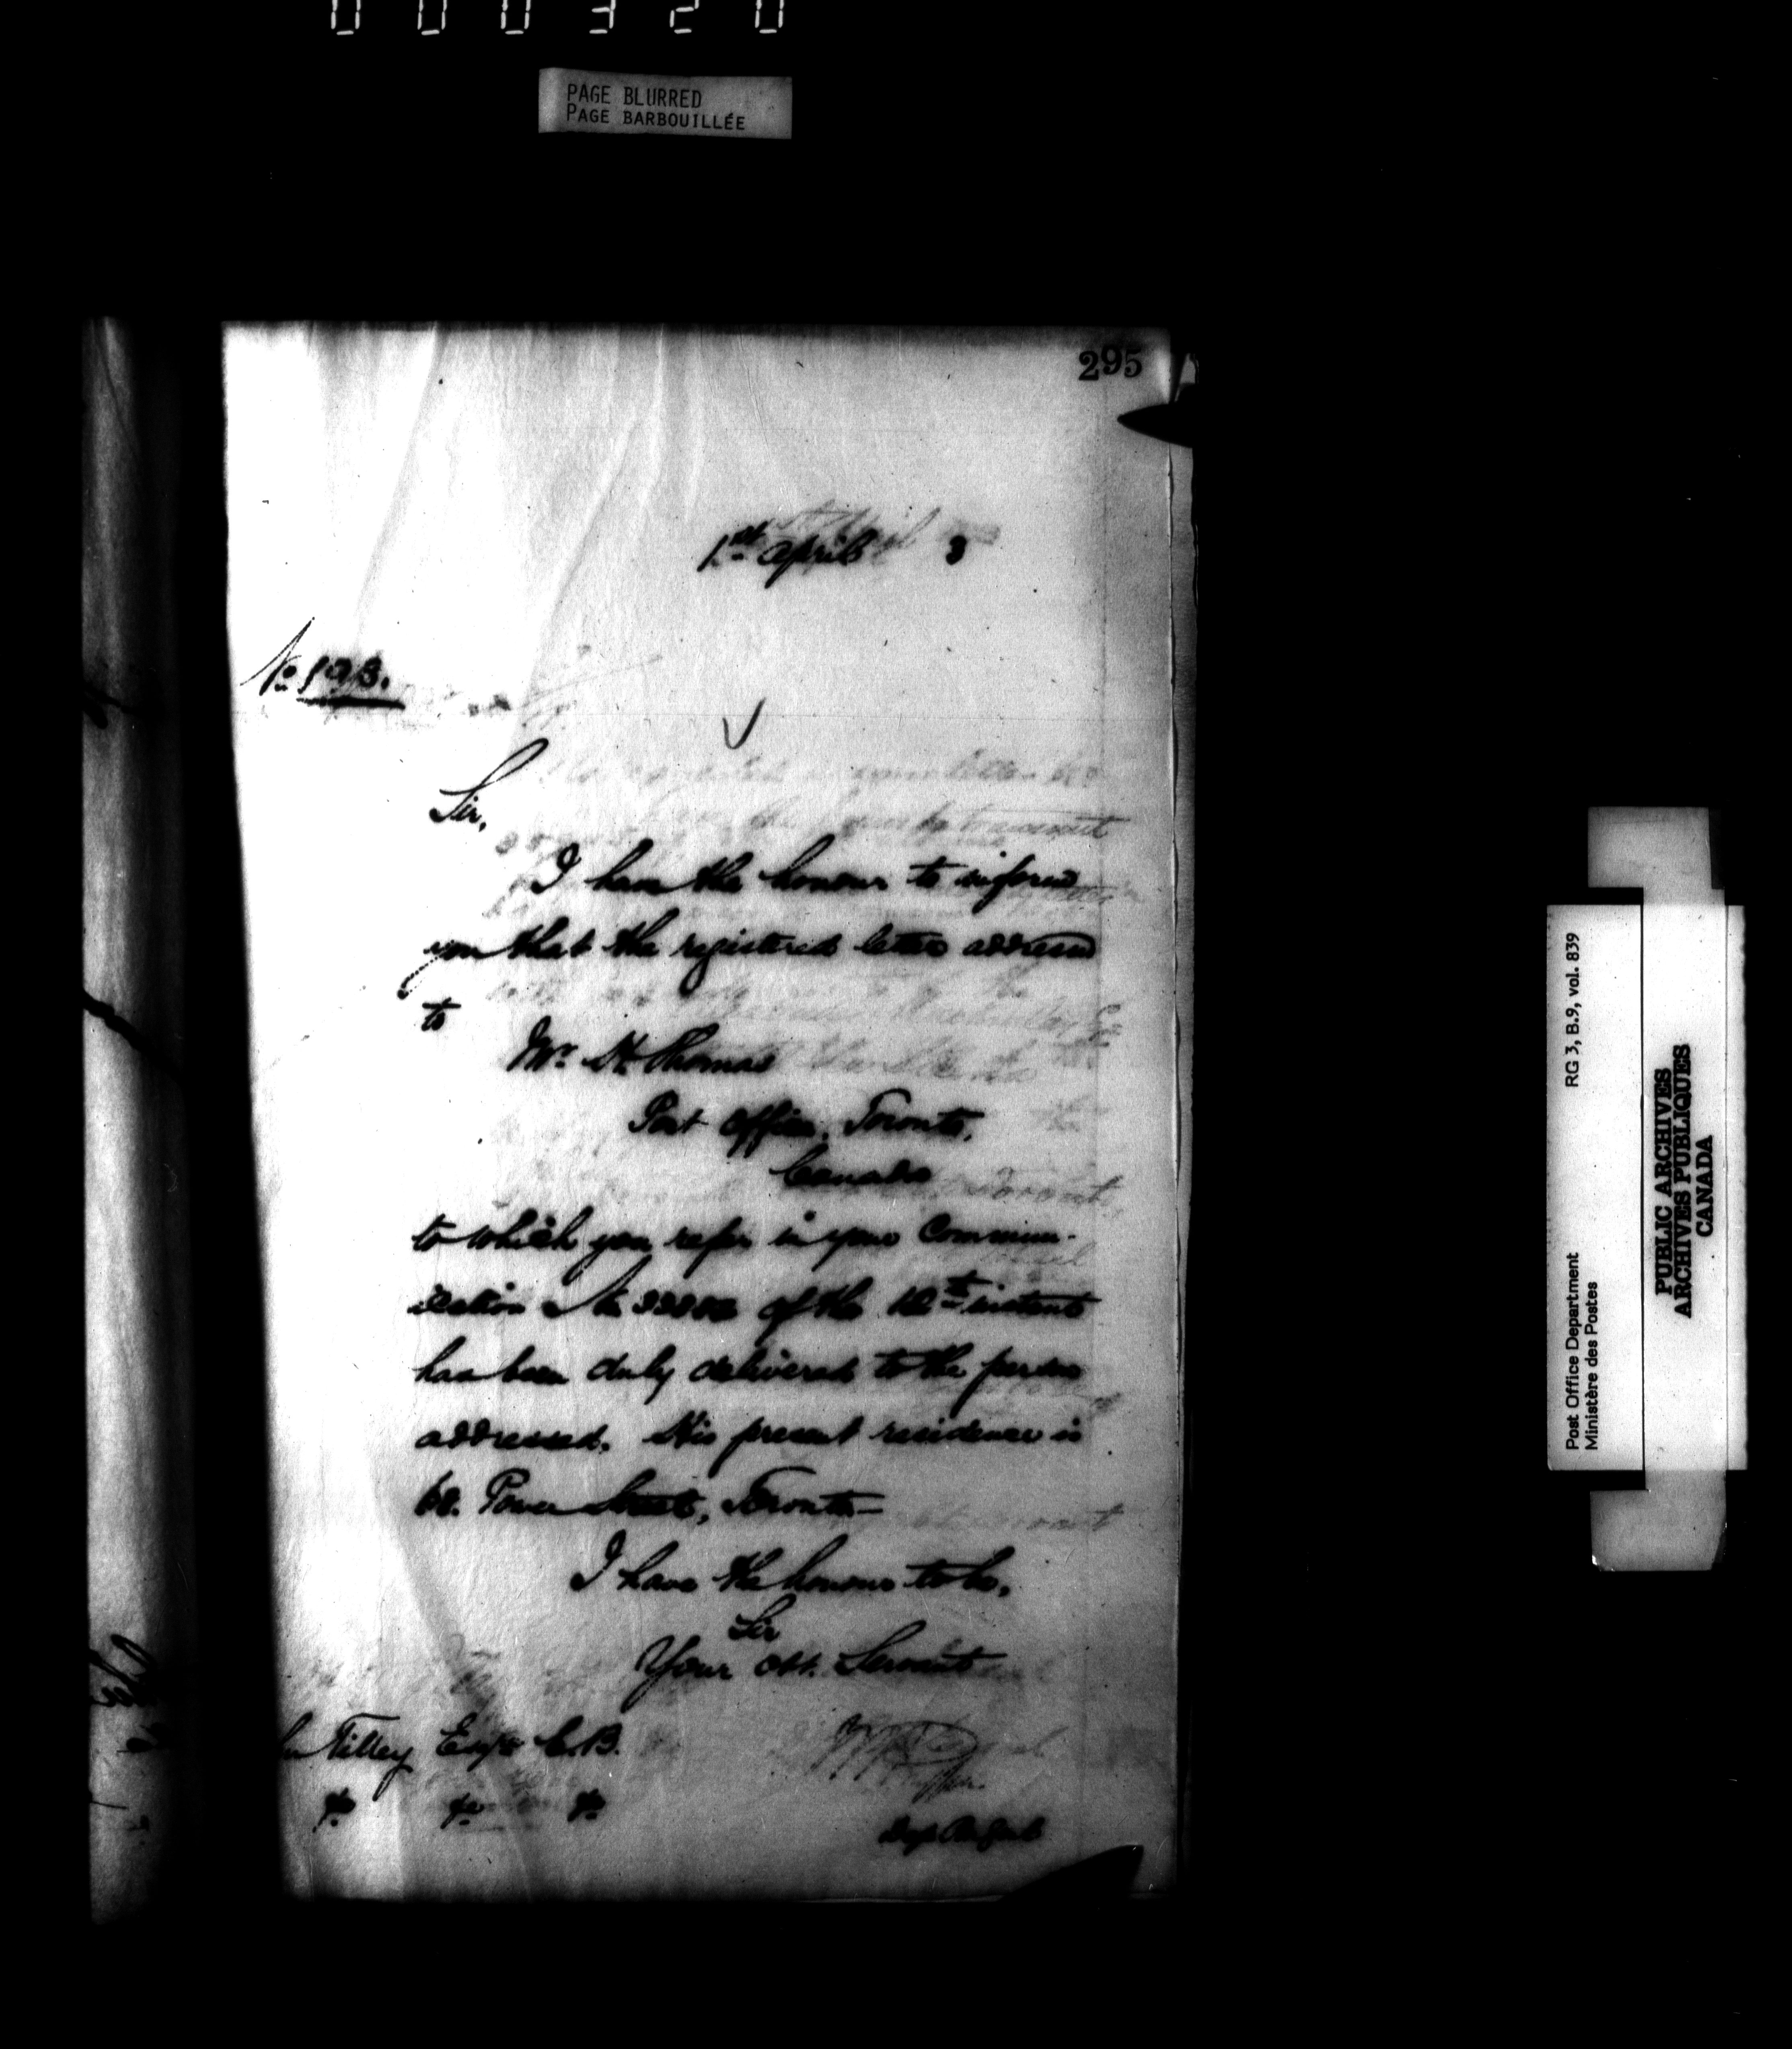 000320
PAGE BLURRED
PAGE BARBOUILLÉE
295
1st April 3
No 193.
Sir,
I have the honour to inform
you that the registered letter addressed
to
Mr. H. Thomas
Post Office, Toronto,
Canada
to which you refer in your Commun-
ication of the instant
has been duly delivered to the person
addressed. His present residence is
Power Street, Toronto—
I have the honour to be,
Sir
Your Obt. Servant
Tilley Esqre C.B.
&c &c &c
RG 3, B.9, vol. 839
Post Office Department
Ministère des Postes
PUBLIC ARCHIVES
ARCHIVES PUBLIQUES
CANADA